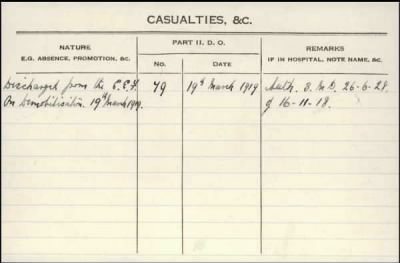 CASUALTIES, &C.
NATURE
E.G. ABSENCE, PROMOTION, &C.
PART II. D. O.
NO.
DATE
REMARKS
IF IN HOSPITAL, NOTE NAME, &C.
Discharged from the C.E.F. 79 19th March 1919 Auth. 3. M.D. 26-6-28.
On Demobilisation. 19th March 1919. of 16-11-18.